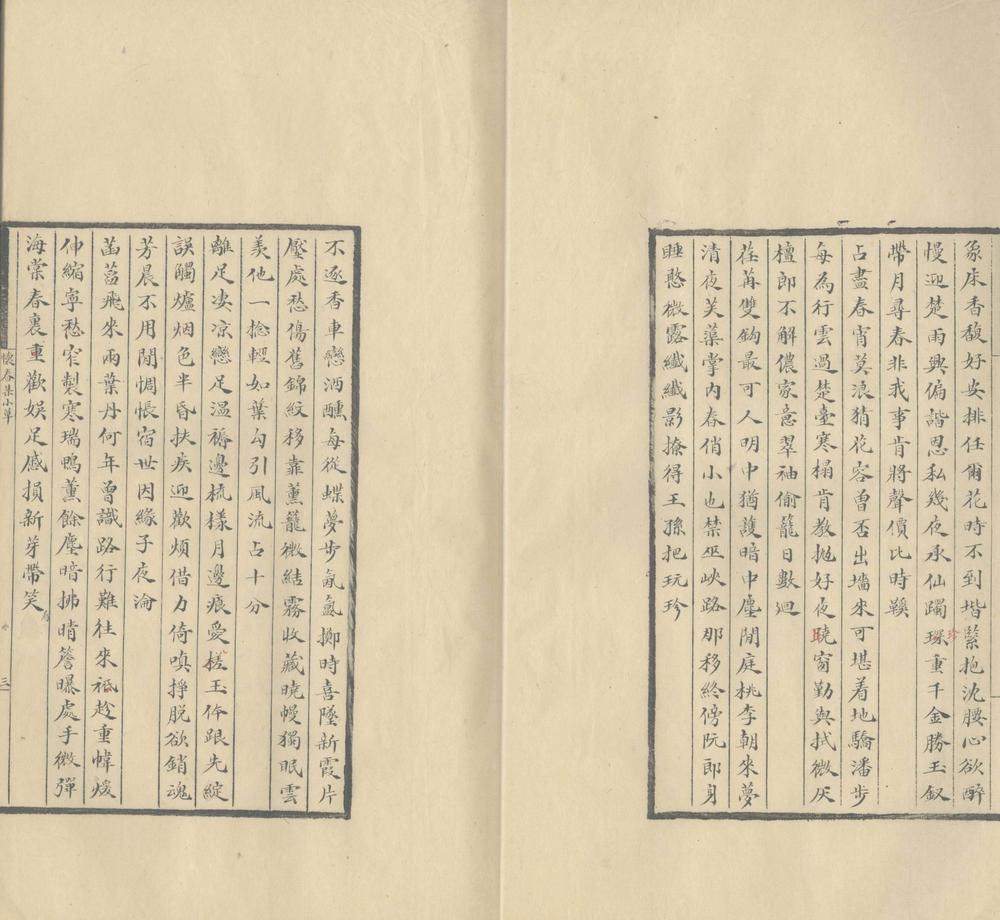 象床香馥好安排任爾花時不到堦緊抱沈腰心欲醉
慢迎楚雨興偏諧恩私幾夜承仙躅琛重千金勝玉釵
珍
帶月尋春非我事肯將聲價比時鞵
占盡春宵莫浪猜花容曾否出墻來可堪着地驕潘步
每為行雲過楚臺寒榻肯教拋好夜曉窗勤與拭微灰
檀郎不解儂家意翠袖偷籠日數迴
荏苒雙鉤最可人明中猶護暗中塵閒庭桃李朝來夢
清夜芙蕖掌內春俏小也禁巫峽路那移終傍阮郎身
睡憨微露纖纖影撩得王孫把玩珍
不逐香車戀酒醺每從蝶夢步氤氳擲時喜墜新霞片
壓處愁傷舊錦紋移靠薰籠微結霧收藏曉幔獨眠雲
羨他一捻輕如葉勾引風流占十分
離足凄凉戀足溫褥邊梳樣月邊痕愛槎玉伶跟先綻
誤觸爐烟色半昏扶疾迎歡煩借力倚嗔掙脫欲銷魂
芳晨不用閒惆悵宿世因緣子夜論
菡萏飛來兩葉丹何年曾識路行難往來祗趁重幃煖
伸縮寧愁窄製寒瑞鴨薰餘塵暗拂晴簷曝處手微彈
海棠春裏重歡娛足感損新芽帶笑
懷春集小草
三